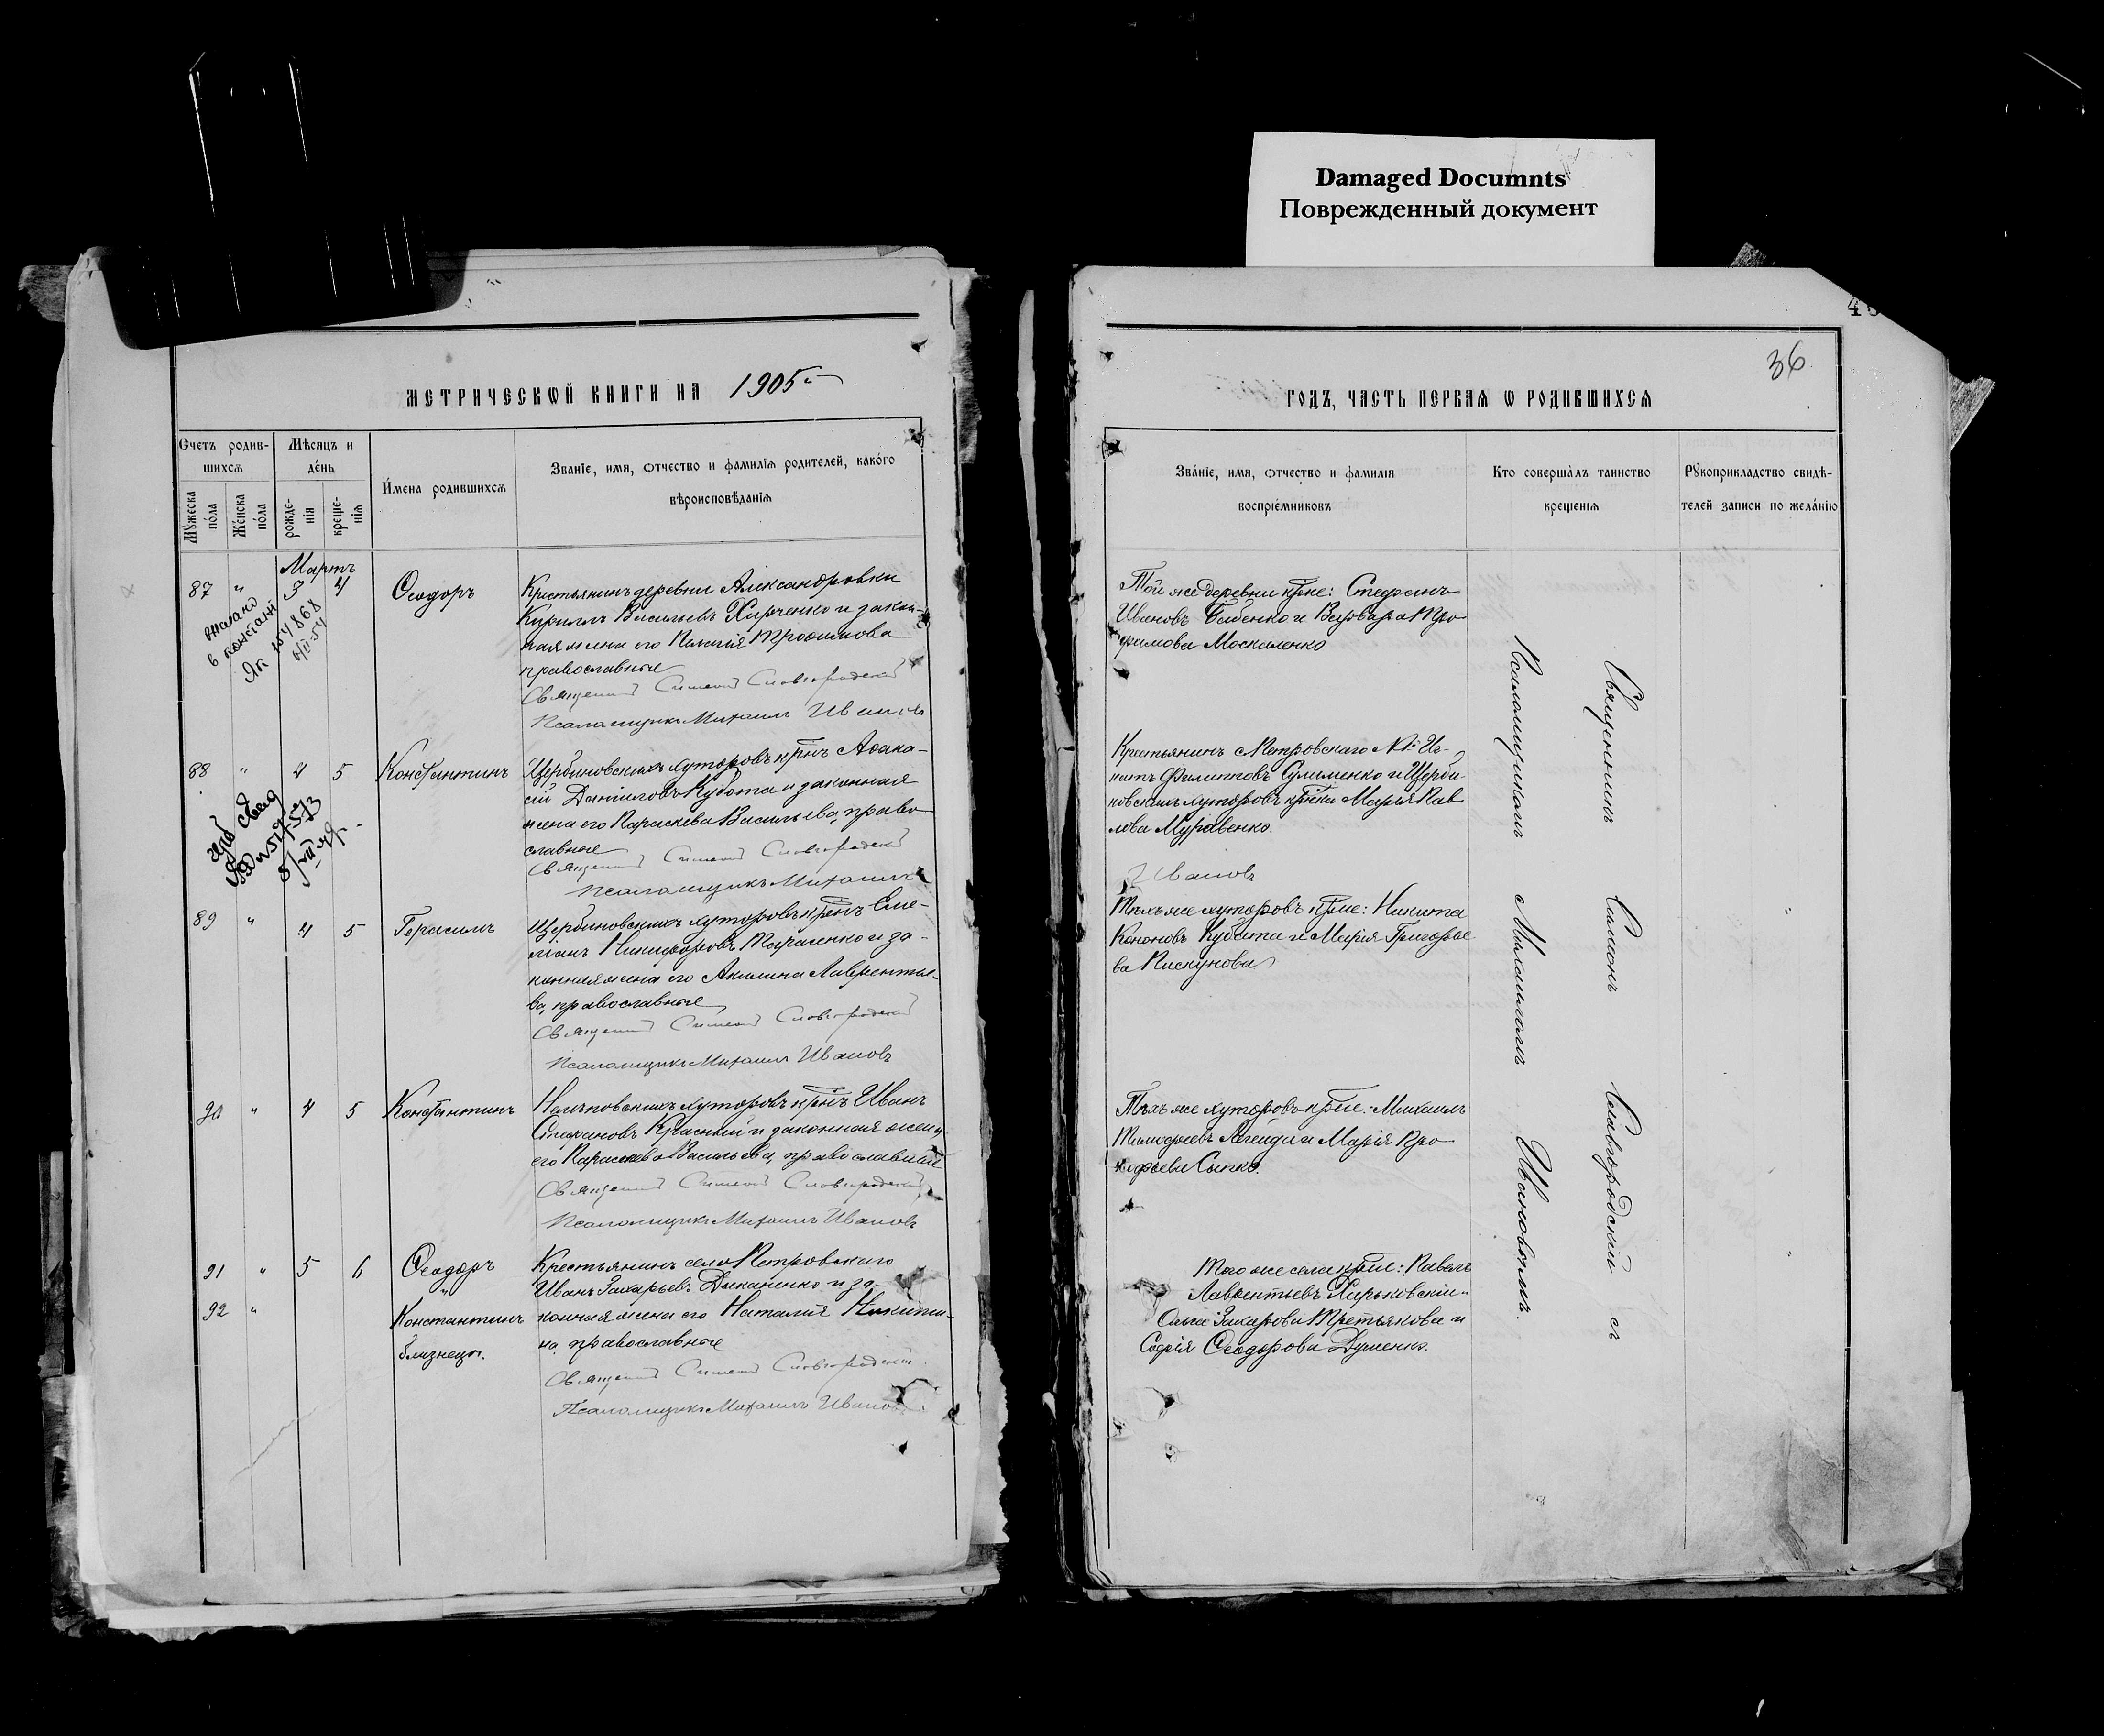 Damaged Documnts
Поврежденный документ
36
МЕТРИЧЕСКѠЙ КНИГИ НА 1905
ГОДЪ, ЧАСТЬ ПЕРВАѦ Ѡ РОДИВШИХСѦ
Счетъ родив-
шихсѧ
Мѣсяцъ и
де́нь
Мꙋжеска
по́ла
Же́нска
по́ла
рожде-
нія
креще-
нія
И́мена родившихсѧ
Званіе, имя, ѡтчество и фамилія родителей, како́го
вѣроисповѣданія
Зва́ніе, имя, ѡтчество и фамилія
воспріе́мниковъ
Кто соверша̀лъ таинство
крещенія
Рꙋкоприкладство свидѣ-
телей записи по жела́нію
Мартъ
87 " 3 4 Ѳеодоръ
Крестьянинъ деревни Александровки
Кириллъ Васильевъ Харченко и закон-
ная жена его Трофимова
православные
Священникъ Симеонъ Славгородскій
Псаломщикъ Михаилъ Ивановъ
Той же деревни кр-не: Стефанъ
Ивановъ Бабенко и Варвара Тро-
фимова Москаленко
88 " 4 5 Константинъ
Щербиновскихъ хуторовъ кр-нъ Аѳана-
сій Даніиловъ Кубата и законная
жена его Параскева Васильева, право-
славные
Священникъ Симеонъ Славгородскій
Псаломщикъ Михаилъ
Ивановъ
Крестьянинъ с Петровскаго
Филипповъ Сулименко и Щерби-
новскихъ хуторовъ кр-нка Марія Пав-
лова Муравенко.
89 " 4 5 Герасимъ
Щербиновскихъ хуторовъ кр-нъ Еме-
ліанъ Никифоровъ Тараненко и за-
конная жена его Акилина Лаврентье-
ва, православные
Священникъ Симеонъ Славгородскій
Псаломщикъ Михаилъ Ивановъ
Тѣхъ же хуторовъ кр-не: Никита
Кононовъ Кубата и Марія Григорье-
ва Пискунова
90 " 4 5 Константинъ
хуторовъ кр-нъ Иванъ
Стефановъ Красный и законная жена
его Параскева Васильева, православные
Священникъ Симеонъ Славгородскій
Псаломщикъ Михаилъ Ивановъ
Тѣхъ же хуторовъ кр-не: Михаилъ
Тимоѳеевъ и Марія
Сыпко.
91 " 5 6 Ѳеодоръ
92 " Константинъ
близнецы.
Крестьянинъ села Петровскаго
Иванъ Захарьевъ Диканенко и за-
конная жена его Наталія Никити-
на, православные
Священникъ Симеонъ Славгородскій
Псаломщикъ Михаилъ Ивановъ
Того же села кр-не: Павелъ
Лаврентьевъ Харьковскій
Ольга Захарова Третьякова и
Софія Ѳеодорова Думенко.
Священникъ Симеонъ Славгородскій съ
Псаломщикомъ Михаиломъ Ивановымъ.